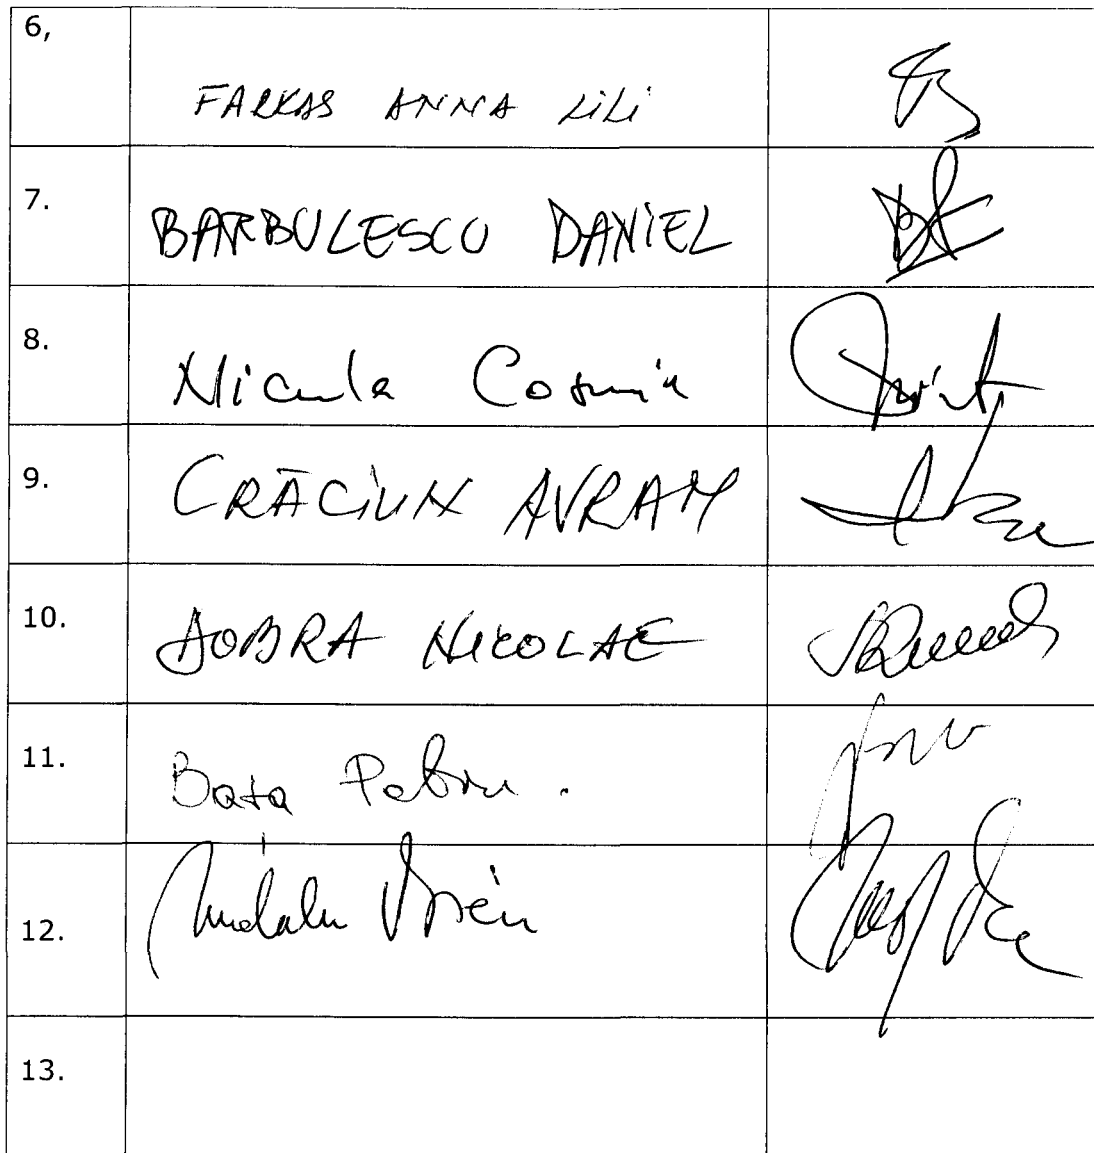 6, FARKAS ANNA LiLi
7. BARBULESCO DANiEL
8. Micula Cosmin
9. CRĂCiUN AVRAM
10. DOBRA NICOLAE
11. Bata Petru .
12.
13.